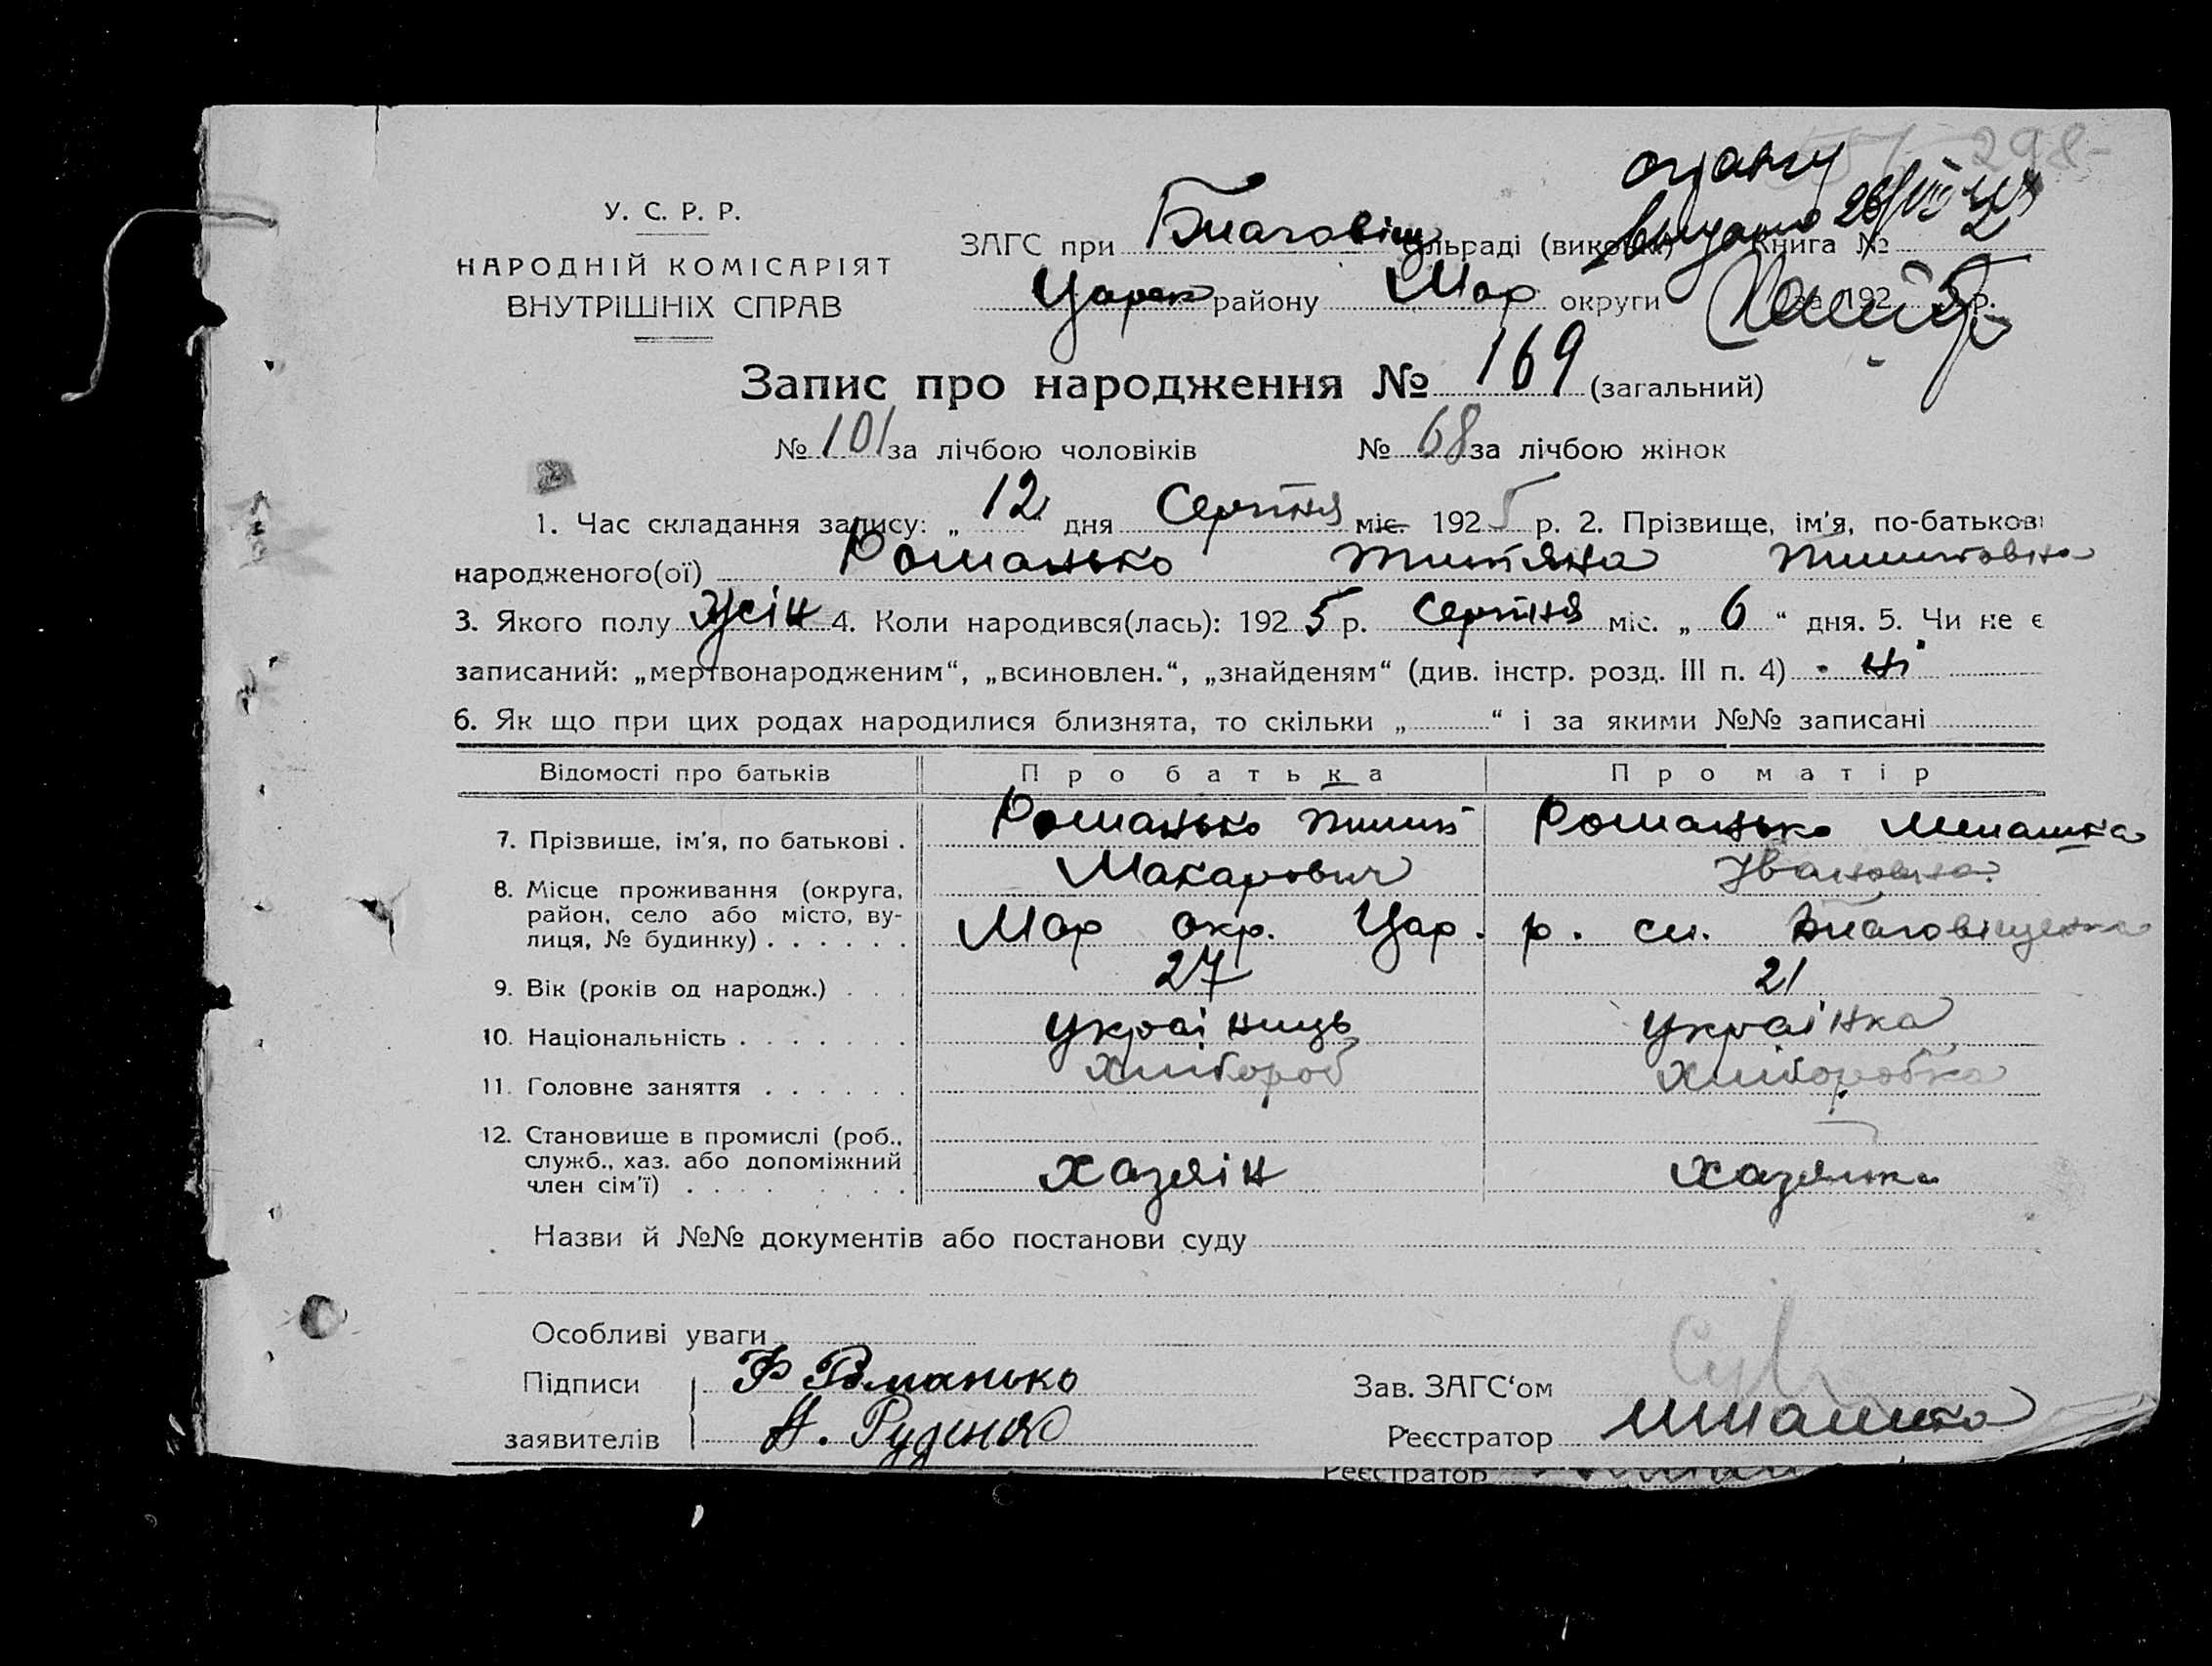 298
У. С. Р. Р.
НАРОДНІЙ КОМІСАРІЯТ
ВНУТРІШНІХ СПРАВ
ЗАГС при Благовіщ сільраді (виконк.) Книга № 2
Царек району Мар округи за 192 5 р.
видано 26/VII
Запис про народження № 169 (загальний)
№ 101 за лічбою чоловіків № 68 за лічбою жінок
1. Час складання запису: „ 12 “ дня Серпня міс. 192 5 р. 2. Прізвище, ім'я, по-батькові
народженого(ої) Романько Титяна Пилиповна
3. Якого полу жін 4. Коли народився(лась): 192 5 р. Серпня міс. „ 6 “ дня. 5. Чи не є
записаний: „мертвонародженим“, „всиновлен.“, „знайденям“ (див. інстр. розд. III п. 4) ні
6. Як що при цих родах народилися близнята, то скільки „ “ і за якими №№ записані
Відомості про батьків Про батька Про матір
7. Прізвище, ім'я, по батькові . Романько Пилип Макарович Романько Ивановна
8. Місце проживання (округа, район, село або місто, ву- лиця, № будинку) . . . . . . Мар окр. Цар. р. сл. Благовіщенка
9. Вік (років од народж.) . . . 27 21
10. Національність . . . . . . . Украіниць Украінка
11. Головне заняття . . . . . . Хлібороб Хліборобка
12. Становище в промислі (роб., служб., хаз. або допоміжний член сім'ї) . . . . . . . . Хазяін Хазяйка
Назви й №№ документів або постанови суду
Особливі уваги
Підписи Ф Романько Зав. ЗАГС‘ом
заявителів А. Руденко Реєстратор
Реєстратор